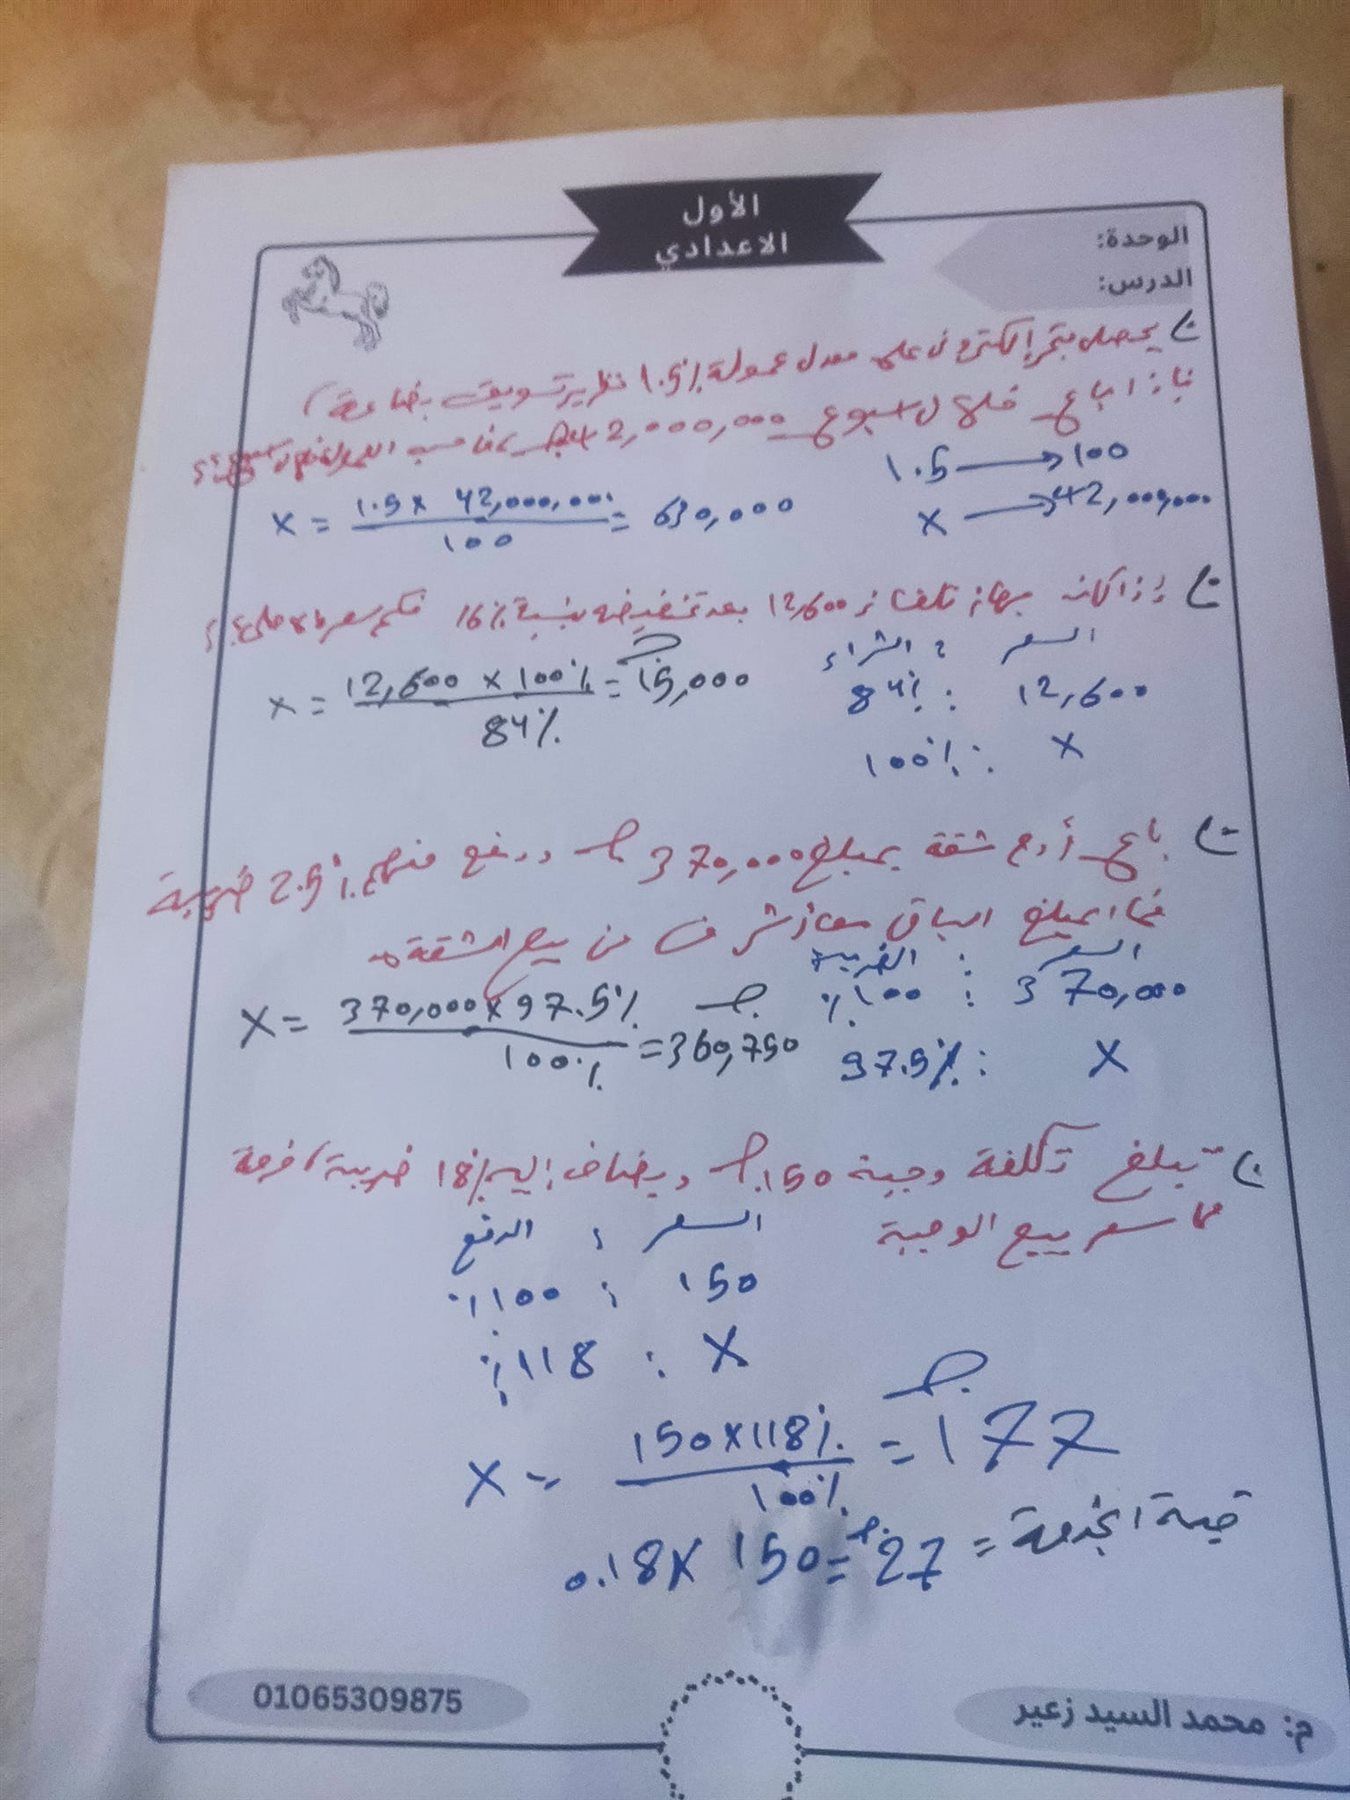 الأول
الاعدادي
الوحدة:
الدرس:
يحصل متجر إلكتروني على معدل عمولة 1.5% نظير تسويق بضاعة
فإذا باع خلال أسبوع 42,000,000 جـ
1.5 → 100
x → 42,000,000
x = 1.5 x 42,000,000 / 100 = 630,000
إذا كان جهاز تلفاز 12,600 بعد تخفيضه بنسبة 16% فكم سعره الأصلي؟
السعر : الشراء
12,600 : 84%
x : 100%
x = 12,600 x 100% / 84% = 15,000 جـ
باع أدهم شقة بمبلغ 370,000 جـ ودفع منهم 2.5% ضريبة
فما المبلغ الباقي من بيع الشقة
السعر : الضريبة
370,000 : 100%
x : 97.5%
x = 370,000 x 97.5% / 100% = 360,750 جـ
تبلغ تكلفة وجبة 150 جـ ويضاف إليه 18% ضريبة خدمة
فما سعر بيع الوجبة
السعر : الدفع
150 : 100%
x : 118%
x = 150 x 118% / 100% = 177 جـ
قيمة الخدمة = 0.18 x 150 = 27 جـ
01065309875
م: محمد السيد زعير